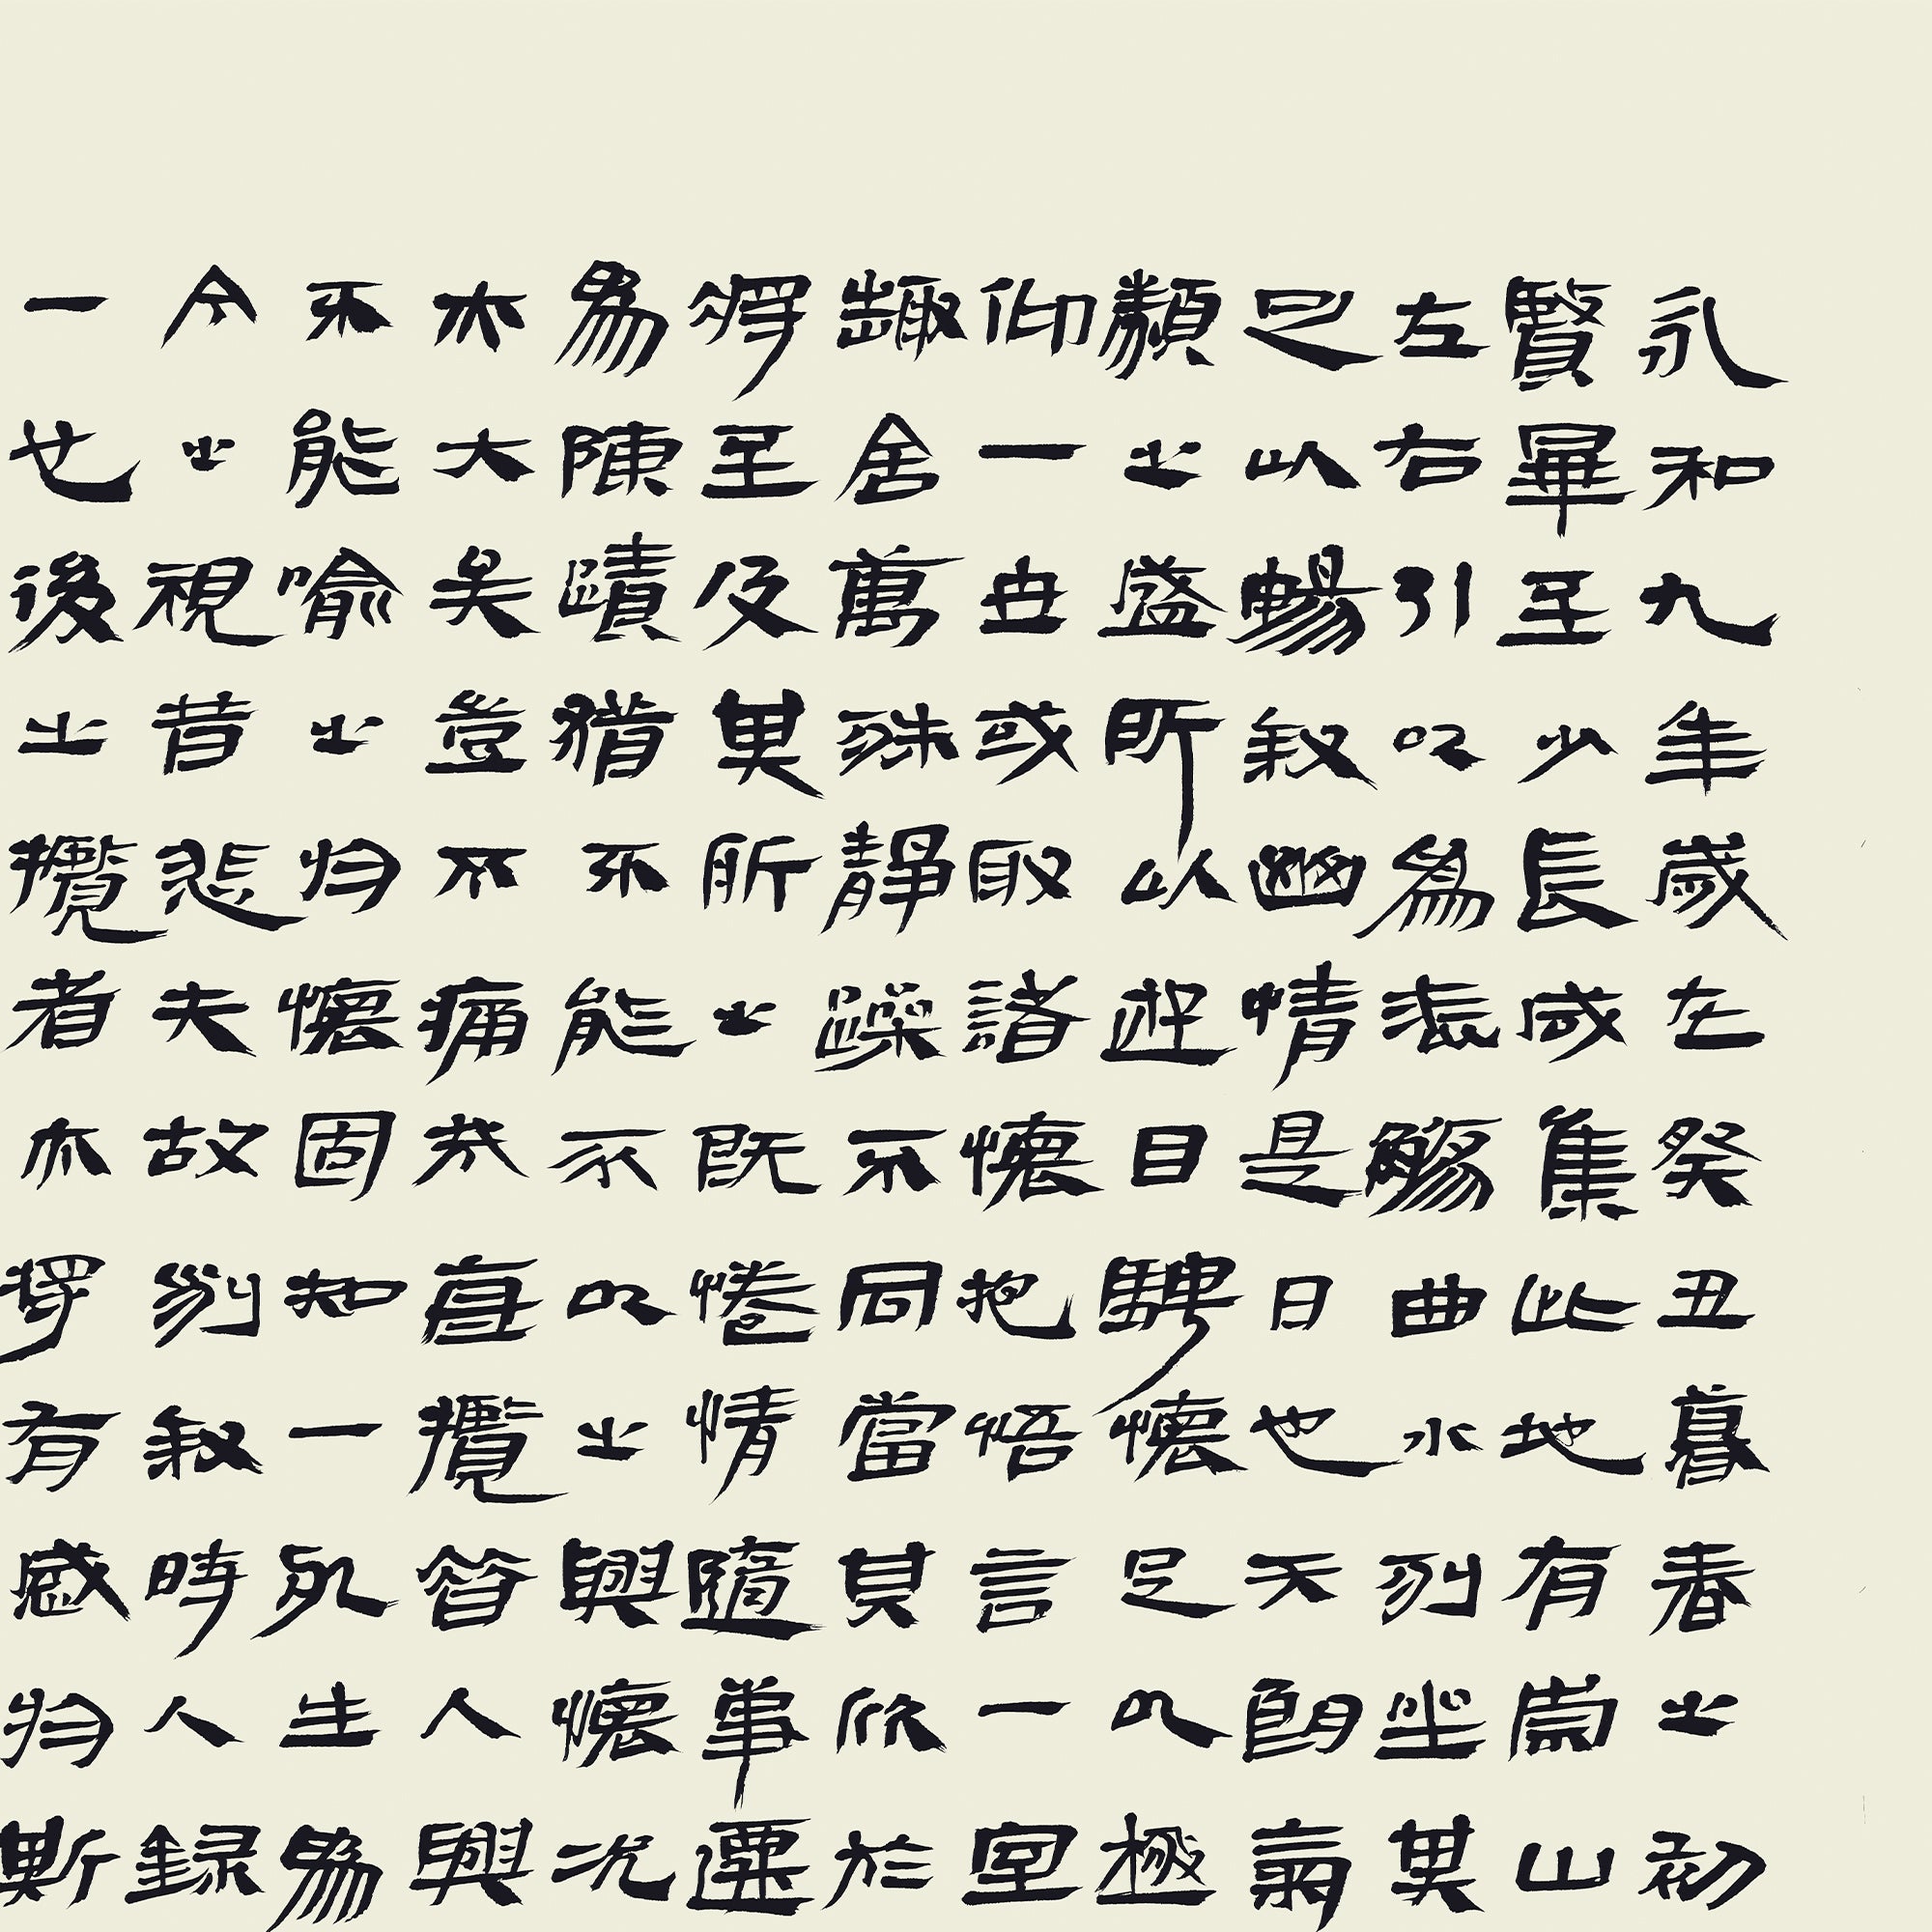 永和九年歲在癸丑暮春之初
賢畢至少長咸集此地有崇山
左右引以爲流觴曲水列坐其
已以暢敘幽情是日也天朗氣
類之盛所以遊目騁懷足以極
仰一世或取諸懷抱悟言一室
趣舍萬殊靜躁不同當其欣於
將至及其所之既惓情隨事遷
爲陳蹟猶不能不以之興懷況
亦大矣豈不痛哉每攬昔人興
不能喻之於懷固知一死生爲
今之視昔悲夫故列敘時人錄
一也後之攬者亦將有感於斯